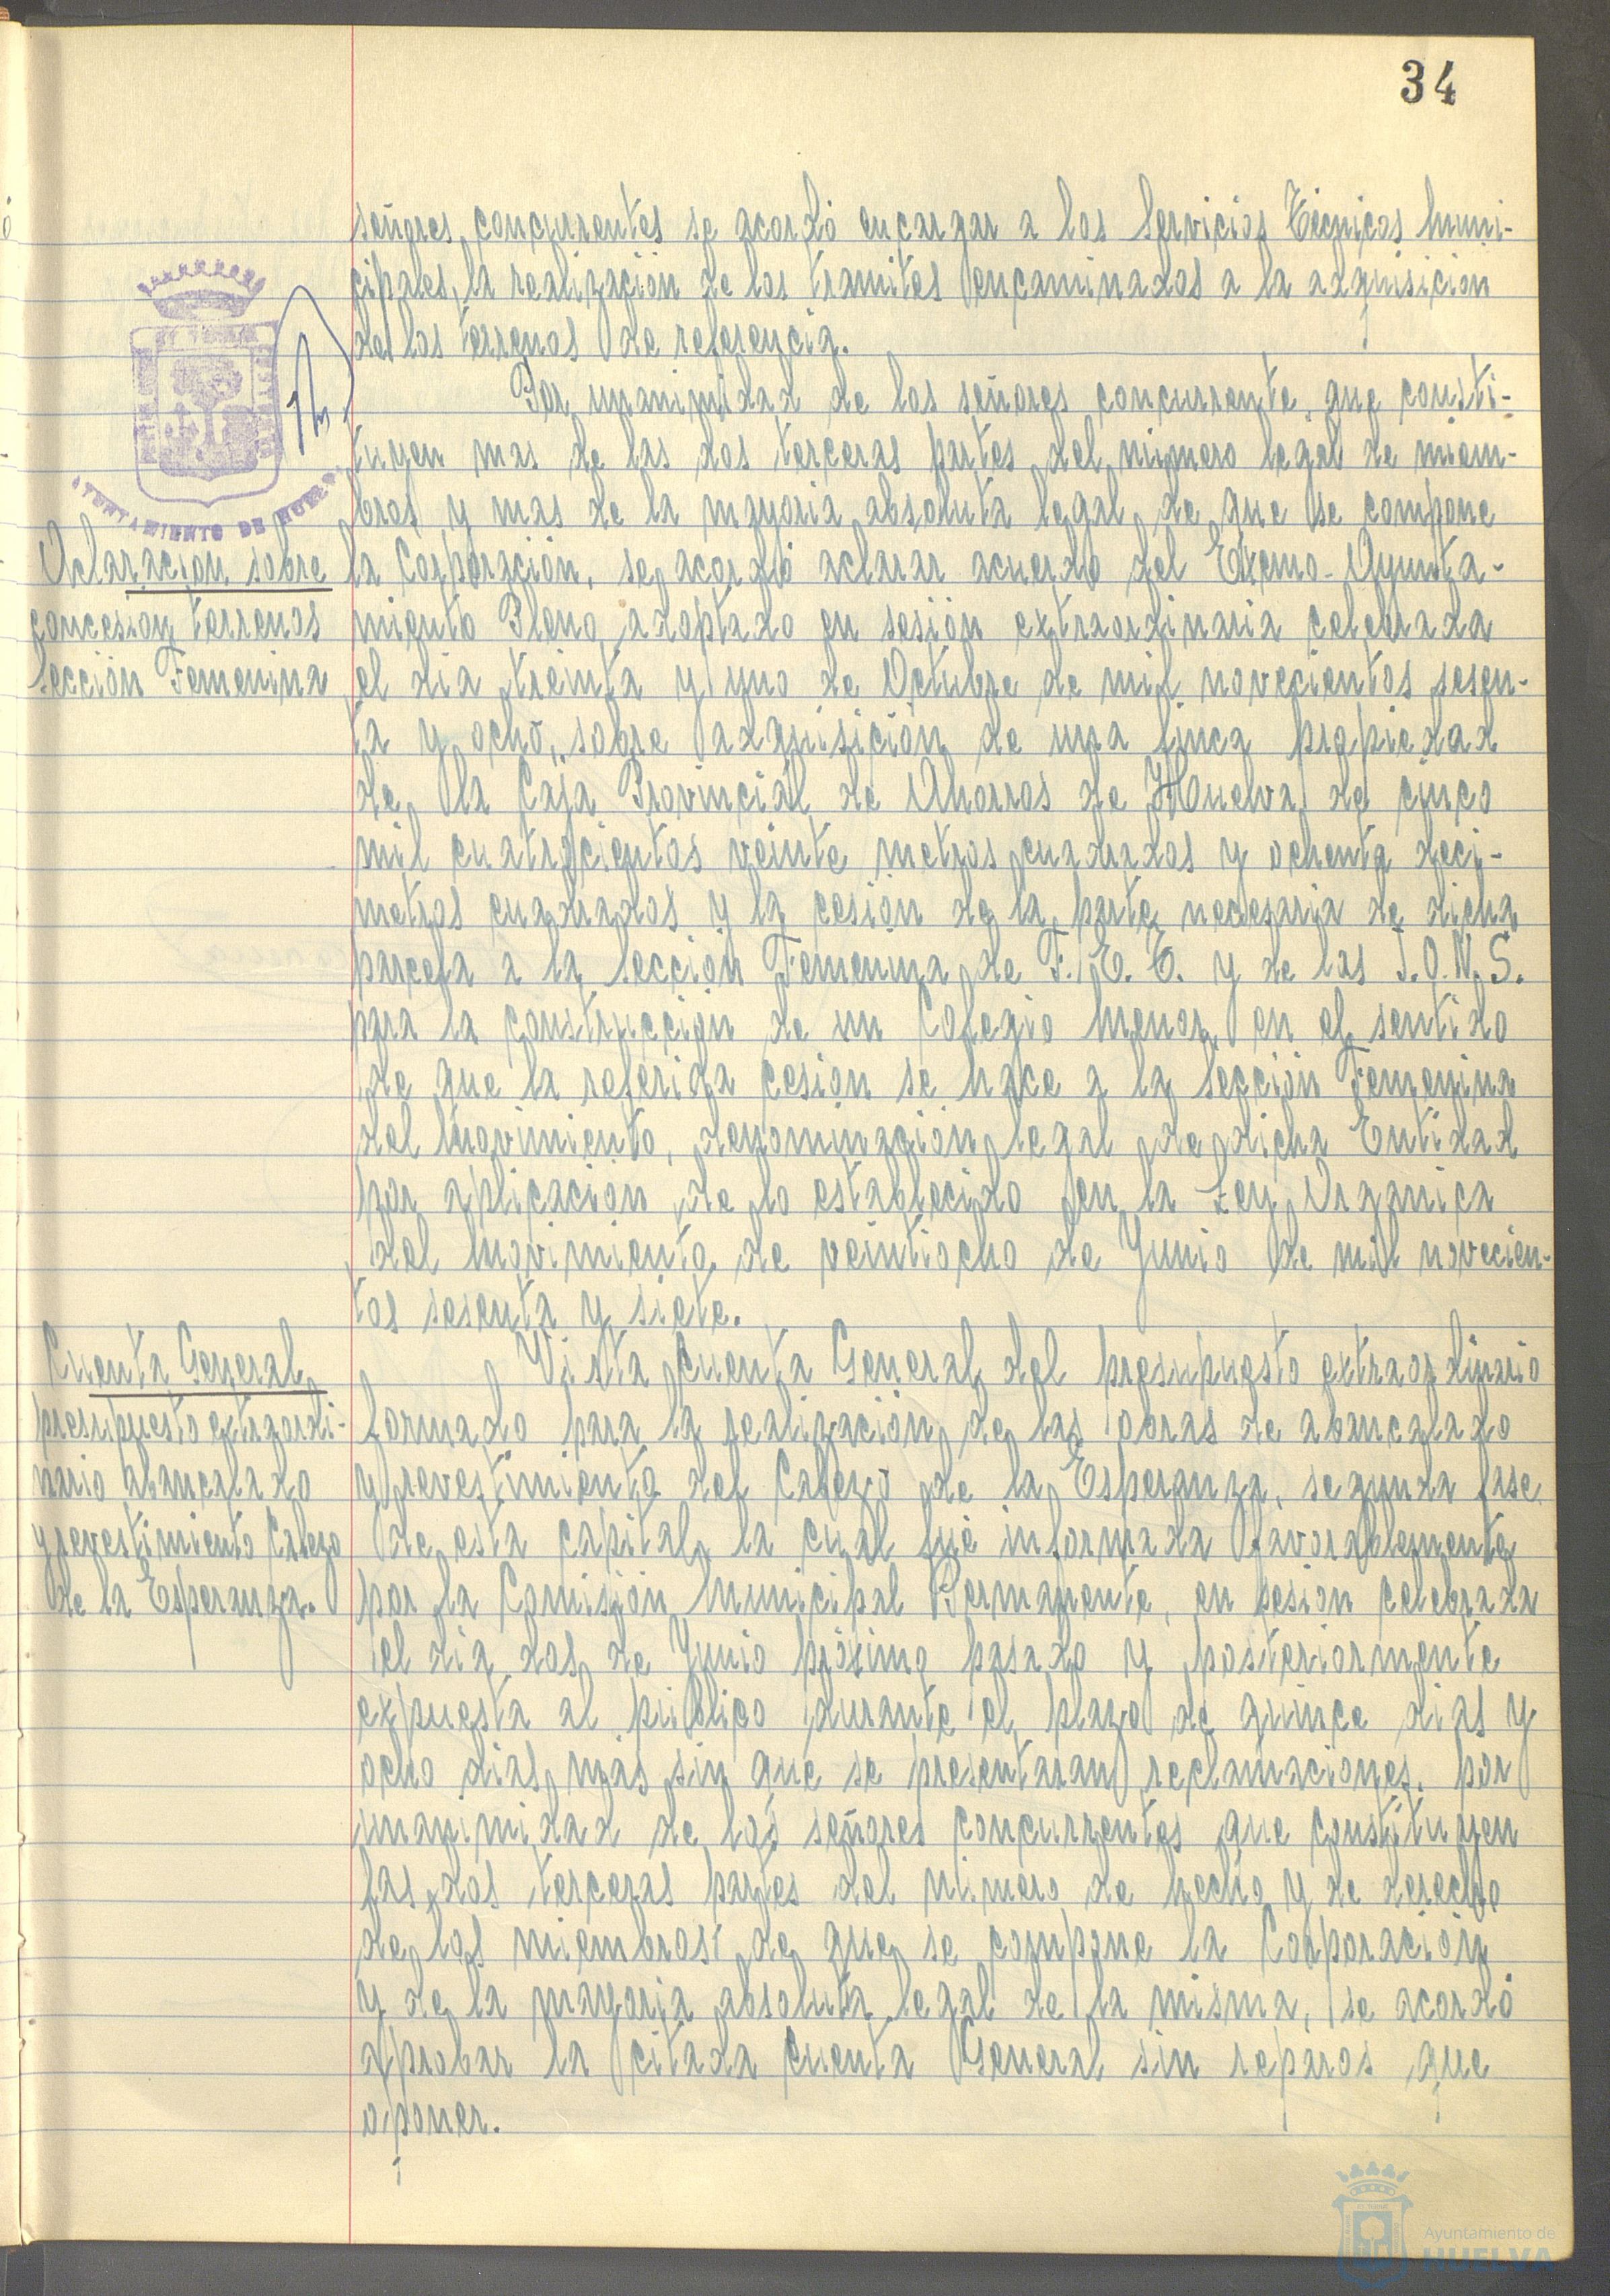 34
señores concurrentes se acordó encargar a los Servicios Técnicos Muni-
cipales, la realización de los tramites encaminados a la adquisición
de los terrenos de referencia.
Por unanimidad de los señores concurrente, que consti-
tuyen mas de las dos terceras partes del número legal de miem-
bros y mas de la mayoria absoluta legal de que se compone
AYUNTAMIENTO DE HUELVA
Aclaracion sobre
concesion terrenos
Sección Femenina
la Corporación, se acordó aclarar acuerdo del Excmo. Ayunta-
miento Pleno adoptado en sesión extraordinaria celebrada
el dia treinta y uno de Octubre de mil novecientos sesen-
ta y ocho, sobre adquisición de una finca propiedad
de la Caja Provincial de Ahorros de Huelva de cinco
mil cuatrocientos veinte metros cuadrados y ochenta deci-
metros cuadrados y la cesión de la parte necesaria de dicha
parcela a la Sección Femenina de F. E. T. y de las J.O.N.S.
para la construcción de un Colegio Menor, en el sentido
de que la referida cesión se hace a la Sección Femenina
del Movimiento, denominación legal de dicha Entidad
por aplicación de lo establecido en la Ley Organica
del Movimiento de veintiocho de Junio de mil novecien-
tos sesenta y siete.
Cuenta General
presupuesto extraordi-
nario abancalado
y revestimiento Cabezo
de la Esperanza.
Vista cuenta General del presupuesto extraordinario
formado para la realización de las obras de abancalado
y revestimiento del Cabezo de la Esperanza, segunda fase
de esta capital, la cual fué informada favorablemente
por la Comisión Municipal Permanente, en sesión celebrada
el dia dos de Junio próximo pasado y posteriormente
expuesta al público durante el plazo de quince dias y
ocho dias más sin que se presentaran reclamaciones, por
unanimidad de los señores concurrentes que constituyen
las dos terceras partes del número de hecho y de derecho
de los miembros de que se compone la Corporación
y de la mayoria absoluta legal de la misma, se acordó
aprobar la citada cuenta General sin reparos que
oponer.
Ayuntamiento de
HUELVA